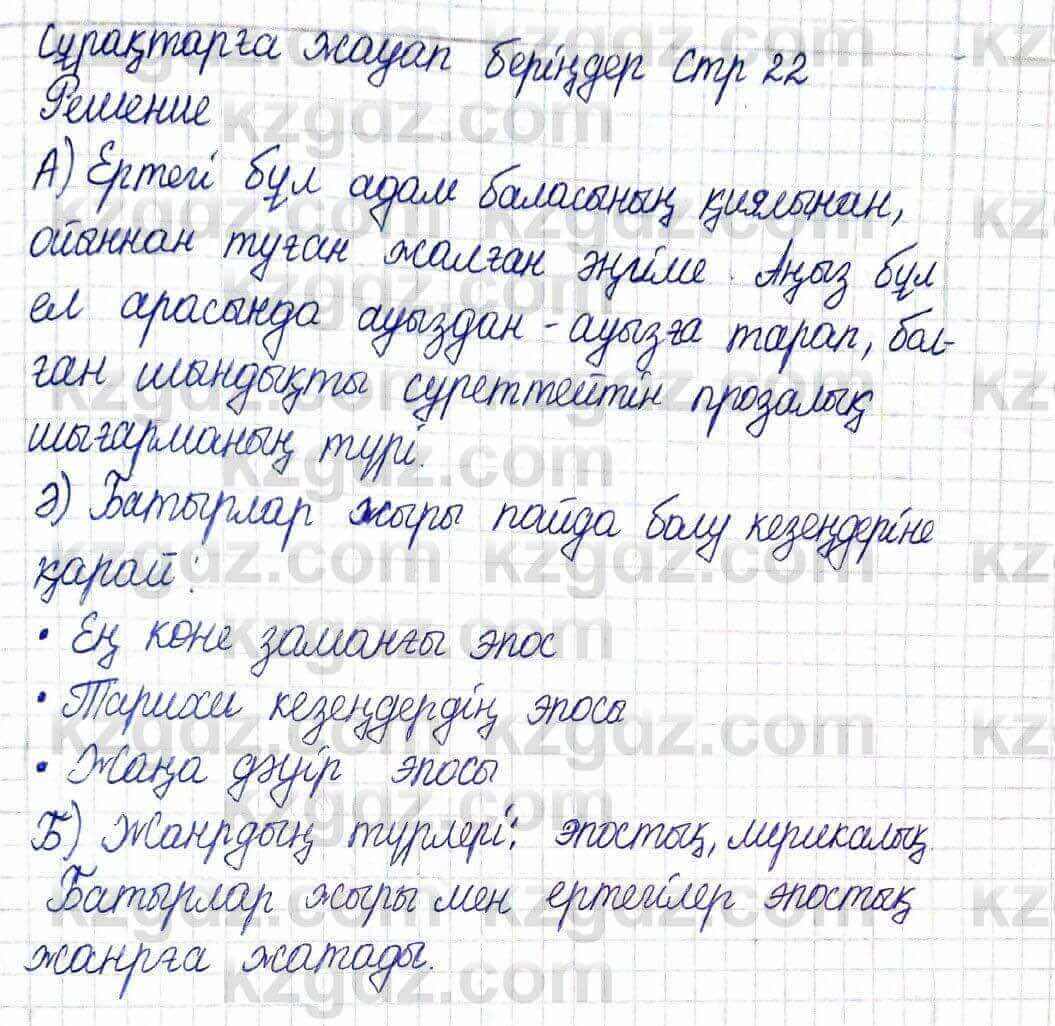 Сұрақтарға жауап беріңдер Стр 22
Решение
А) Ертегі бұл адам баласының қиялынан,
ойыннан туған жалған әңгіме. Аңыз бұл
ел арасында ауыздан-ауызға тарап, бол-
ған шындықты суреттейтін прозалық
шығарманың түрі.
Ә) Батырлар жыры пайда болу кезеңдеріне
қарай:
• Ең көне заманғы эпос
• Тарихи кезеңдердің эпосы
• Жаңа дәуір эпосы
Б) Жанрдың түрлері: эпостық, лирикалық
Батырлар жыры мен ертегілер эпостық
жанрға жатады.
kzgdz.com